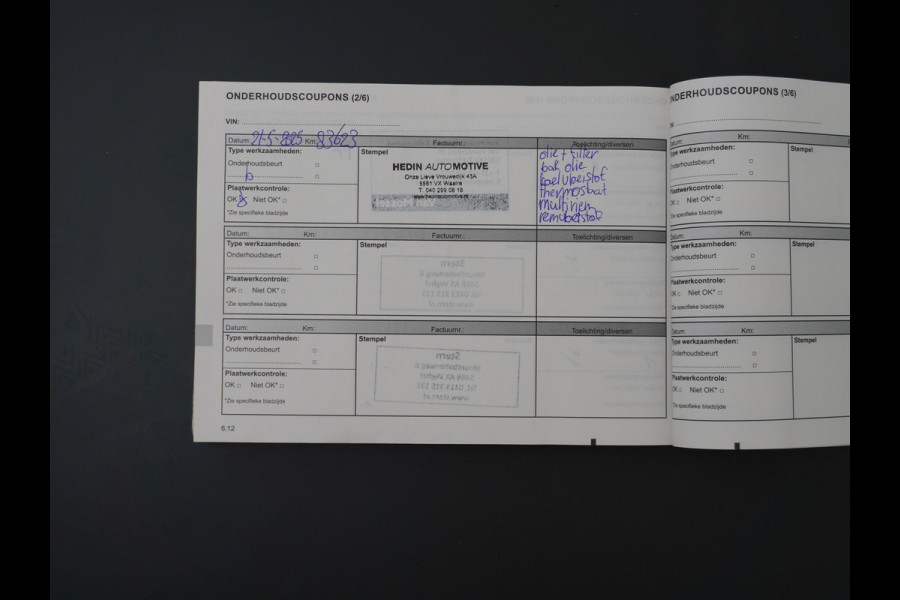 ONDERHOUDSCOUPONS (2/6)
VIN:
Datum: 21-5-2025 Km: 83623 Factuurnr.: Toelichting/diversen
Type werkzaamheden:
Onderhoudsbeurt
Plaatwerkcontrole:
OK Niet OK*
*Zie specifieke bladzijde
Stempel
HEDIN AUTOMOTIVE
Onze Lieve Vrouwedijk 43A
5581 VX Waalre
T. 040 299 08 18
www.hedinautomotive.nl
olie + filter
koelvloeistof
remvloeistof
Datum: Km: Factuurnr.: Toelichting/diversen
Type werkzaamheden:
Onderhoudsbeurt
Plaatwerkcontrole:
OK Niet OK*
*Zie specifieke bladzijde
Stempel
Datum: Km: Factuurnr.: Toelichting/diversen
Type werkzaamheden:
Onderhoudsbeurt
Plaatwerkcontrole:
OK Niet OK*
*Zie specifieke bladzijde
Stempel
6.12
NDERHOUDSCOUPONS (3/6)
Datum: Km:
Type werkzaamheden:
Onderhoudsbeurt
Plaatwerkcontrole:
OK Niet OK*
*Zie specifieke bladzijde
Stempel
Datum: Km:
Type werkzaamheden:
Onderhoudsbeurt
Plaatwerkcontrole:
OK Niet OK*
*Zie specifieke bladzijde
Stempel
Datum: Km:
Type werkzaamheden:
Onderhoudsbeurt
Plaatwerkcontrole:
OK Niet OK*
*Zie specifieke bladzijde
Stempel